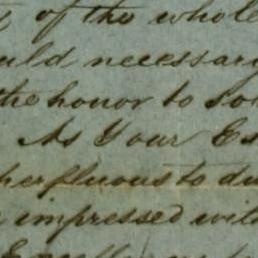 of the whole
uld necessary
the honor to so
As Your Ex
perfluous to du
impressed with